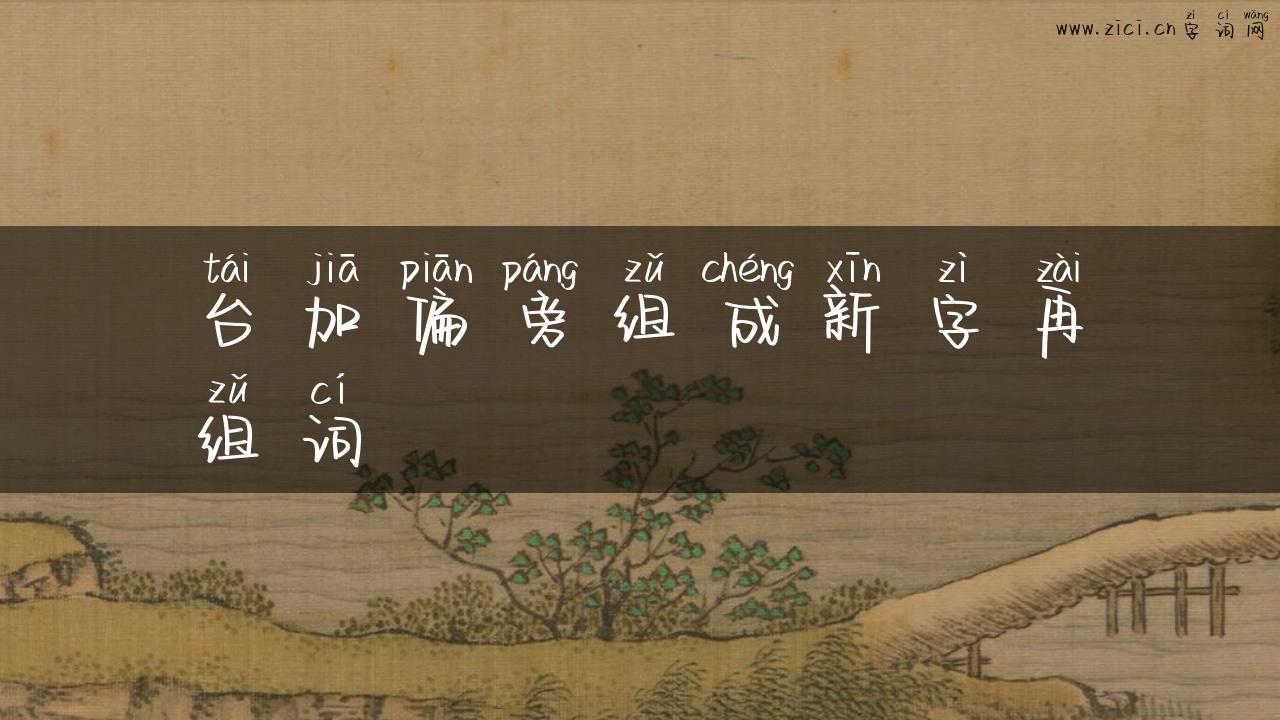 zì cí wǎng
www.zici.cn 字词网
tái jiā piān páng zǔ chéng xīn zì zài
台加偏旁组成新字再
zǔ cí
组词